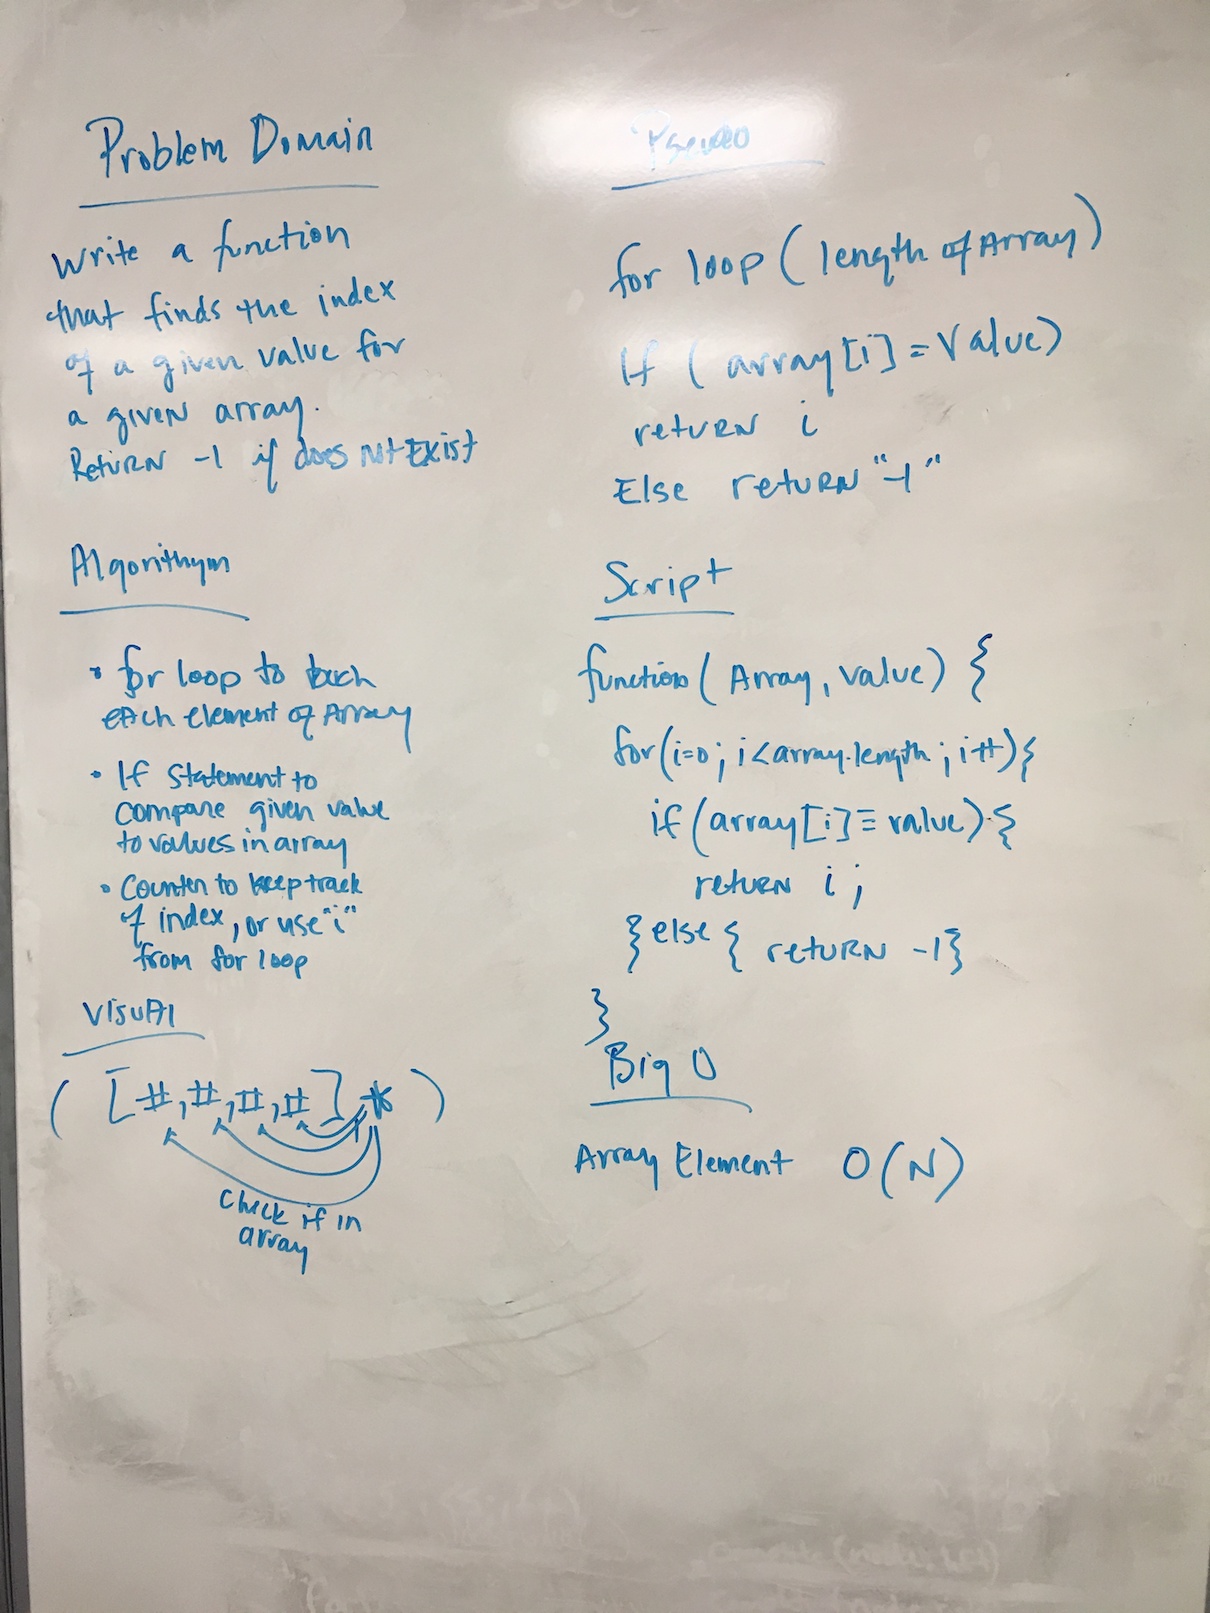 Problem Domain
Write a function
that finds the index
of a given value for
a given array.
Return -1 if does not Exist
Algorithym
• for loop to touch
each element of Array
• If statement to
compare given value
to values in array
• Counter to keep track
of index, or use "i"
from for loop
Visual
( [#,#,#,#] * )
check if in
array
Pseudo
for loop ( length of Array )
If ( array [i] = Value)
return i
Else return "-1"
Script
function ( Array, value) {
for (i=0; i<array.length; i++) {
if (array [i] ≡ value) {
return i;
} else { return -1}
}
Big O
Array Element O(N)